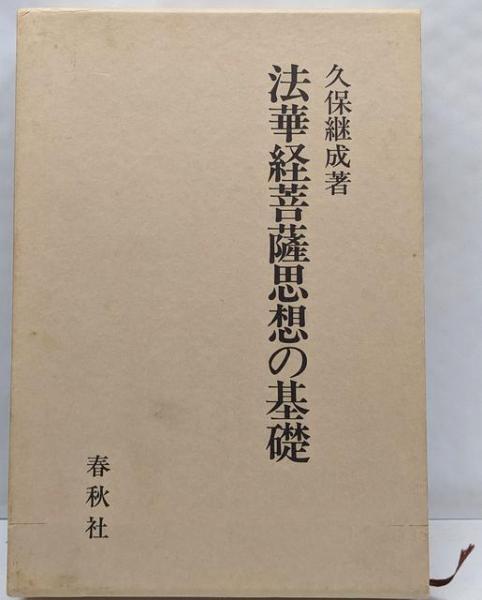 久保継成著
法華経菩薩思想の基礎
春秋社